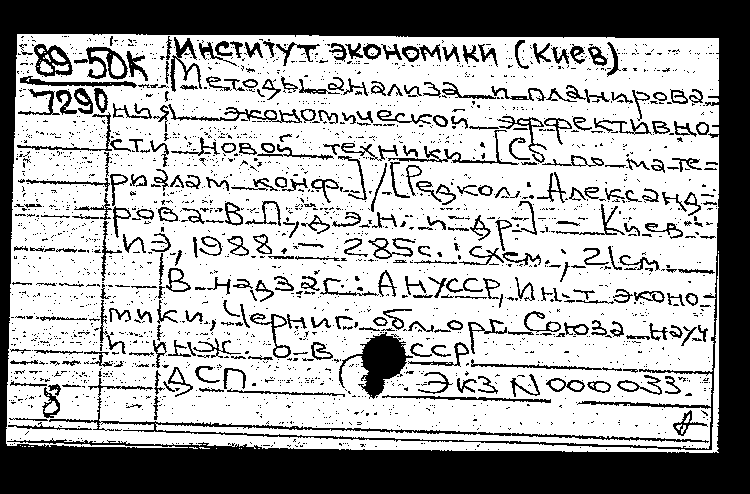 89-50К
7290
Институт экономики (Киев)
Методы анализа и планирова=
ния экономической эффективно=
сти новой техники : [Сб. по мате=
риалам конф.] / [Редкол.: Александ=
рова В.П., д.э.н. и др.]. – Киев:
ИЭ, 1988. – 285с. : схем. ; 21см.
В надзаг.: АН УССР, Ин-т эконо=
мики, Черниг. обл. орг. Союза науч.
и инж. о-в СССР
ДСП. Экз N 000033.
8